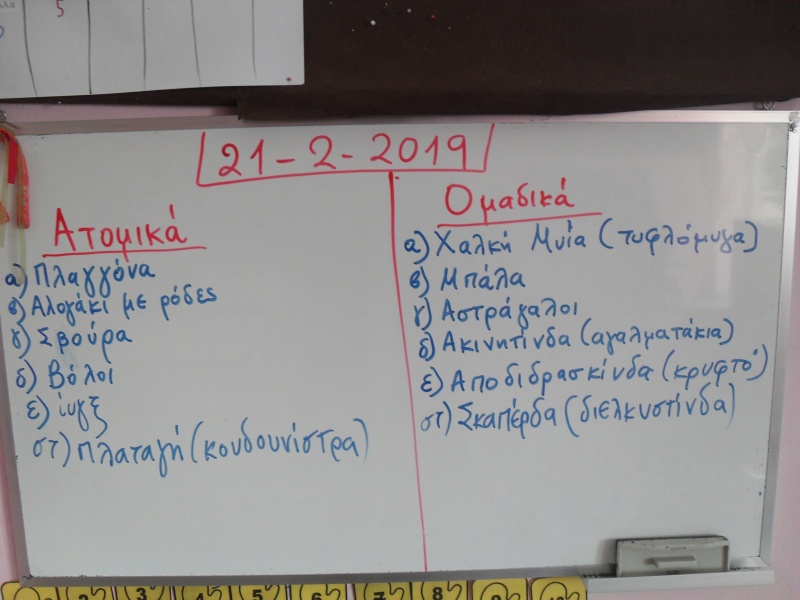 5
21-2-2019
Ατομικά
α) Πλαγγόνα
β) Αλογάκι με ρόδες
γ) Σβούρα
δ) Βόλοι
ε) ίυγξ
στ) Πλαταγή (κουδουνίστρα)
Ομαδικά
α) Χαλκή Μυία (τυφλόμυγα)
β) Μπάλα
γ) Αστράγαλοι
δ) Ακινητίνδα (αγαλματάκια)
ε) Αποδιδρασκίνδα (κρυφτό)
στ) Σκαπέρδα (διελκυστίνδα)
2 3 4 5 6 7 8 9 10